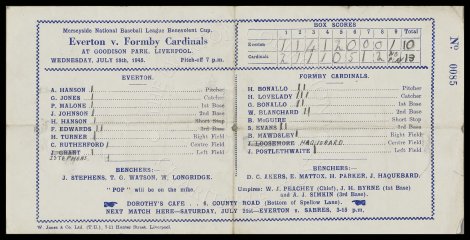 Merseyside National Baseball League Benevolent Cup.
Everton v. Formby Cardinals
AT GOODISON PARK, LIVERPOOL.
WEDNESDAY, JULY 18th, 1945. Pitch-off 7 p.m.
BOX SCORES
1 2 3 4 5 6 7 8 9
Everton 1 1 4 1 2 0 0 0 1 10
Cardinals 2 1 1 0 5 1 2 13
EVERTON.
A. HANSON Pitcher
G. JONES Catcher
P. MALONE 1st Base
J. JOHNSON 2nd Base
H. HANSON Short Stop
F. EDWARDS 3rd Base
H. TURNER Right Field
C. RUTHERFORD Centre Field
J. GRANT Left Field
STEPHENS
BENCHERS:
J. STEPHENS, T. G. WATSON, W. LONGRIDGE.
"POP" will be on the mike.
FORMBY CARDINALS.
H. BONALLO Pitcher
H. LOVELADY Catcher
G. BONALLO 1st Base
W. BLANCHARD 2nd Base
B. McGUIRE Short Stop
S. EVANS 3rd Base
B. MAWDSLEY Right Field
J. LOOSEMORE HAQUEBARD. Centre Field
J. POSTLETHWAITE Left Field
BENCHERS:
D. C. AKERS, E. MATTOX, H. PARKER, J. HAQUEBARD.
Umpires: W. J. PEACHEY (Chief), J. H. BYRNE (1st Base)
and A. J. SIMKIN (3rd Base).
DOROTHY'S CAFE, 4, COUNTY ROAD (Bottom of Spellow Lane).
NEXT MATCH HERE—SATURDAY, JULY 21st—EVERTON v. SABRES, 3-15 p.m.
W. Jones & Co. Ltd. (T.U.), Hunter Street, Liverpool.
0085